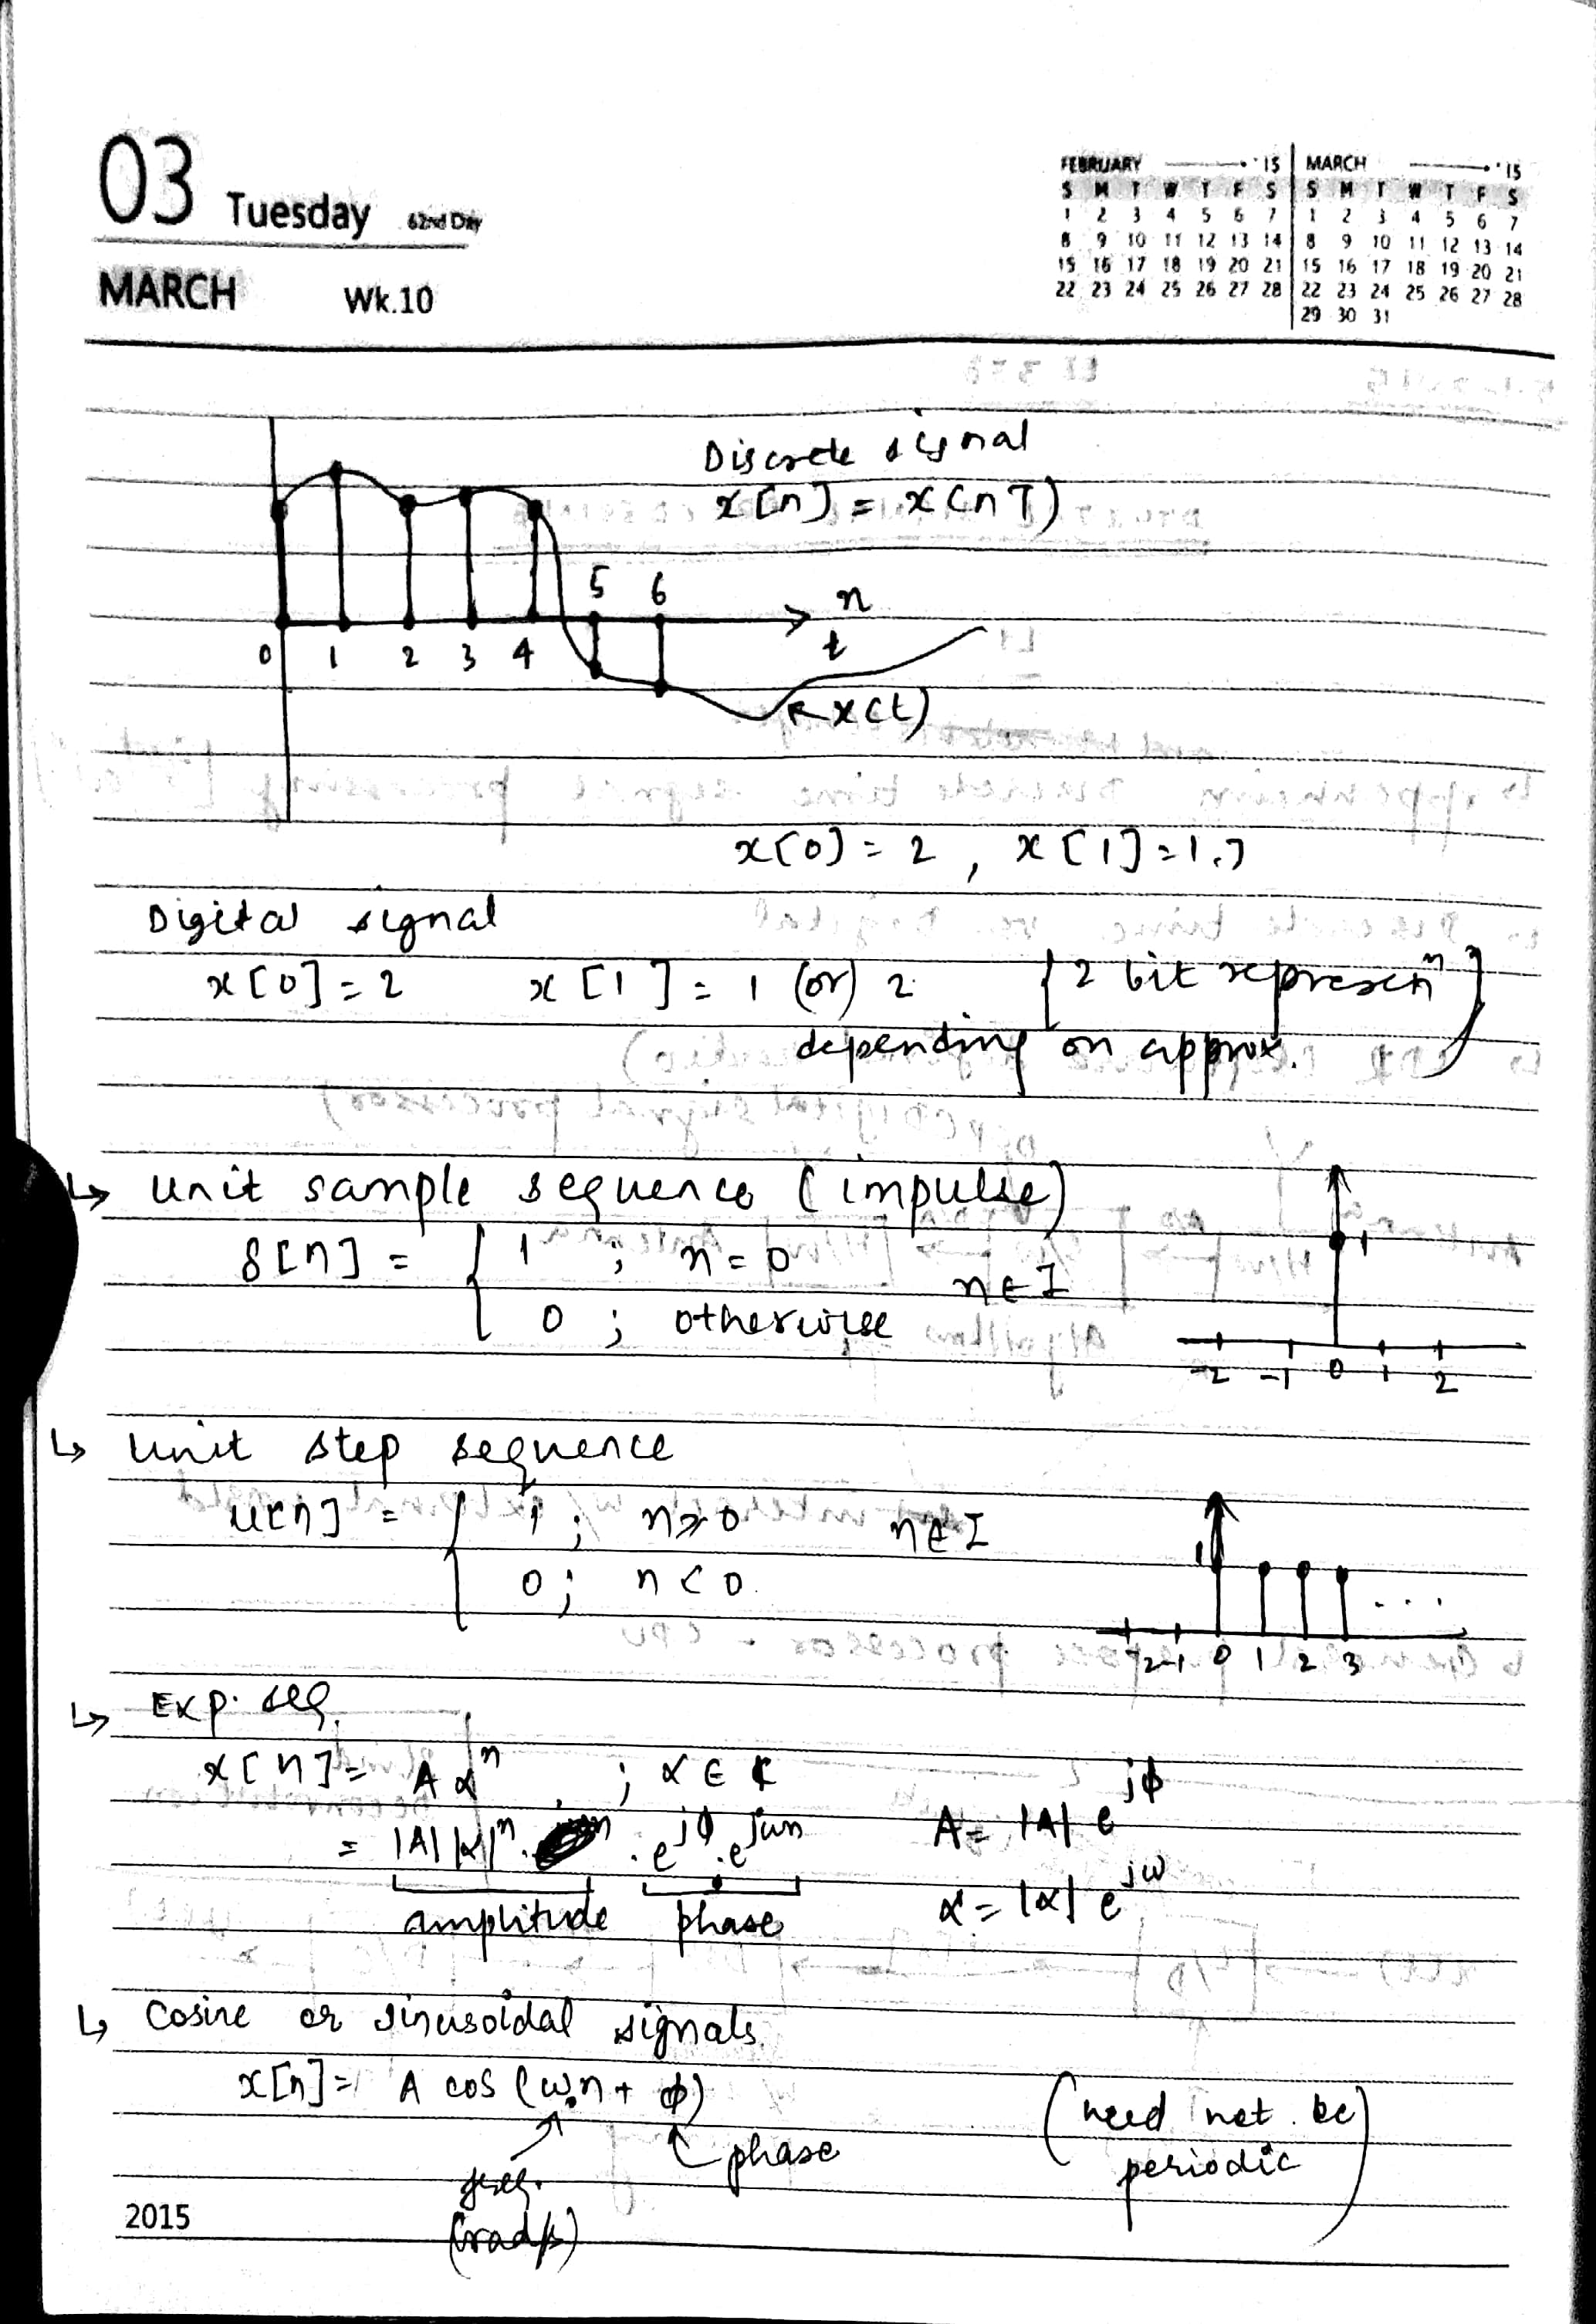 03 Tuesday 62nd Day
MARCH Wk.10
FEBRUARY '15 MARCH '15
S M T W T F S S M T W T F S
1 2 3 4 5 6 7 1 2 3 4 5 6 7
8 9 10 11 12 13 14 8 9 10 11 12 13 14
15 16 17 18 19 20 21 15 16 17 18 19 20 21
22 23 24 25 26 27 28 22 23 24 25 26 27 28
29 30 31
Discrete signal
x[n] = x(nT)
5 6 n
0 1 2 3 4 t
x(t)
x[0] = 2 , x[1] = 1.7
Digital signal
x[0] = 2 x[1] = 1 (or) 2 {2 bit represenⁿ}
depending on approx.
↳ unit sample sequence (impulse)
δ[n] = { 1 ; n = 0
n ∈ I
0 ; otherwise
1
-2 -1 0 1 2
↳ Unit step sequence
u[n] = { 1 ; n ≥ 0 n ∈ I
0 ; n < 0
1 ...
-2 -1 0 1 2 3
↳ Exp. seq.
x[n] = A αⁿ ; α ∈ ℂ
= |A| |α|ⁿ . e^jϕ . e^jωn A = |A| e^jϕ
amplitude phase α = |α| e^jω
↳ Cosine or sinusoidal signals
x[n] = A cos (ω₀n + ϕ)
(need not be
phase periodic)
freq.
(rad/s)
2015